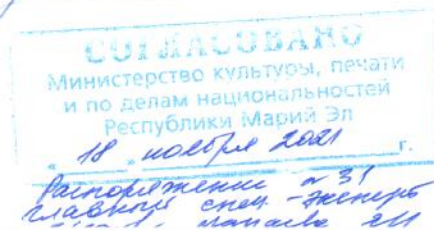 СОГЛАСОВАНО
Министерство культуры, печати
и по делам национальностей
Республики Марий Эл
" 18 " ноября 2021 г.
Распоряжение № 31
главный спец-эксперт